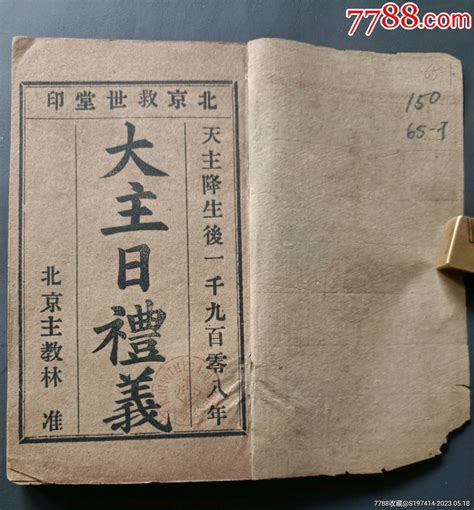 7788.com
北京救世堂印
天主降生後一千九百零八年
大主日禮義
北京主教林 准
150
7788收藏@S197414-2023.05.18